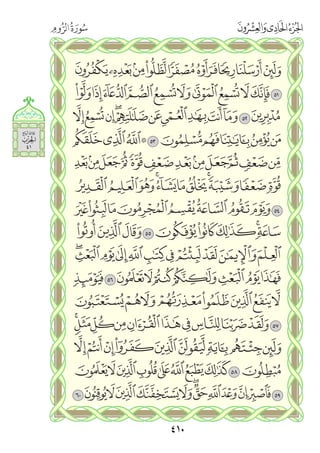 الجزء الحادي والعشرون
سورة الروم
وَلَئِنْ أَرْسَلْنَا رِيحًا فَرَأَوْهُ مُصْفَرًّا لَّظَلُّوا۟ مِنۢ بَعْدِهِۦ يَكْفُرُونَ
٥١ فَإِنَّكَ لَا تُسْمِعُ ٱلْمَوْتَىٰ وَلَا تُسْمِعُ ٱلصُّمَّ ٱلدُّعَآءَ إِذَا وَلَّوْا۟
مُدْبِرِينَ ٥٢ وَمَآ أَنتَ بِهَٰدِ ٱلْعُمْىِ عَن ضَلَٰلَتِهِمْ ۖ إِن تُسْمِعُ إِلَّا
مَن يُؤْمِنُ بِـَٔايَٰتِنَا فَهُم مُّسْلِمُونَ ٥٣ ۞ ٱللَّهُ ٱلَّذِى خَلَقَكُم
مِّن ضَعْفٍ ثُمَّ جَعَلَ مِنۢ بَعْدِ ضَعْفٍ قُوَّةً ثُمَّ جَعَلَ مِنۢ بَعْدِ
قُوَّةٍ ضَعْفًا وَشَيْبَةً ۚ يَخْلُقُ مَا يَشَآءُ ۖ وَهُوَ ٱلْعَلِيمُ ٱلْقَدِيرُ
٥٤ وَيَوْمَ تَقُومُ ٱلسَّاعَةُ يُقْسِمُ ٱلْمُجْرِمُونَ مَا لَبِثُوا۟ غَيْرَ
سَاعَةٍ ۚ كَذَٰلِكَ كَانُوا۟ يُؤْفَكُونَ ٥٥ وَقَالَ ٱلَّذِينَ أُوتُوا۟
ٱلْعِلْمَ وَٱلْإِيمَٰنَ لَقَدْ لَبِثْتُمْ فِى كِتَٰبِ ٱللَّهِ إِلَىٰ يَوْمِ ٱلْبَعْثِ ۖ
فَهَٰذَا يَوْمُ ٱلْبَعْثِ وَلَٰكِنَّكُمْ كُنتُمْ لَا تَعْلَمُونَ ٥٦ فَيَوْمَئِذٍ
لَّا يَنفَعُ ٱلَّذِينَ ظَلَمُوا۟ مَعْذِرَتُهُمْ وَلَا هُمْ يُسْتَعْتَبُونَ
٥٧ وَلَقَدْ ضَرَبْنَا لِلنَّاسِ فِى هَٰذَا ٱلْقُرْءَانِ مِن كُلِّ مَثَلٍ ۚ
وَلَئِن جِئْتَهُم بِـَٔايَةٍ لَّيَقُولَنَّ ٱلَّذِينَ كَفَرُوٓا۟ إِنْ أَنتُمْ إِلَّا
مُبْطِلُونَ ٥٨ كَذَٰلِكَ يَطْبَعُ ٱللَّهُ عَلَىٰ قُلُوبِ ٱلَّذِينَ لَا يَعْلَمُونَ
٥٩ فَٱصْبِرْ إِنَّ وَعْدَ ٱللَّهِ حَقٌّ ۖ وَلَا يَسْتَخِفَّنَّكَ ٱلَّذِينَ لَا يُوقِنُونَ ٦٠
الحزب
٤١
٤١٠